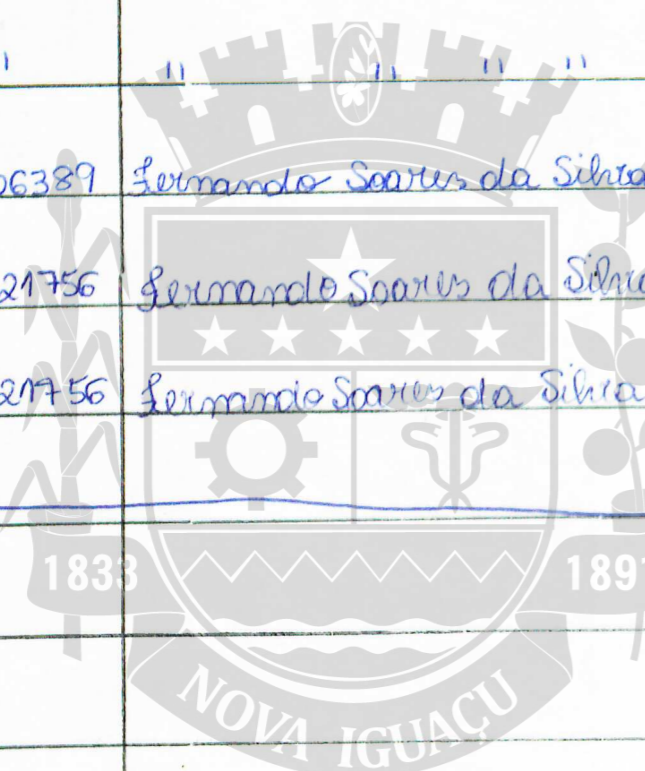 " " " " "
06389 Fernando Soares da Silva
21756 Fernando Soares da Silva
21756 Fernando Soares da Silva
1833 189
NOVA IGUAÇU